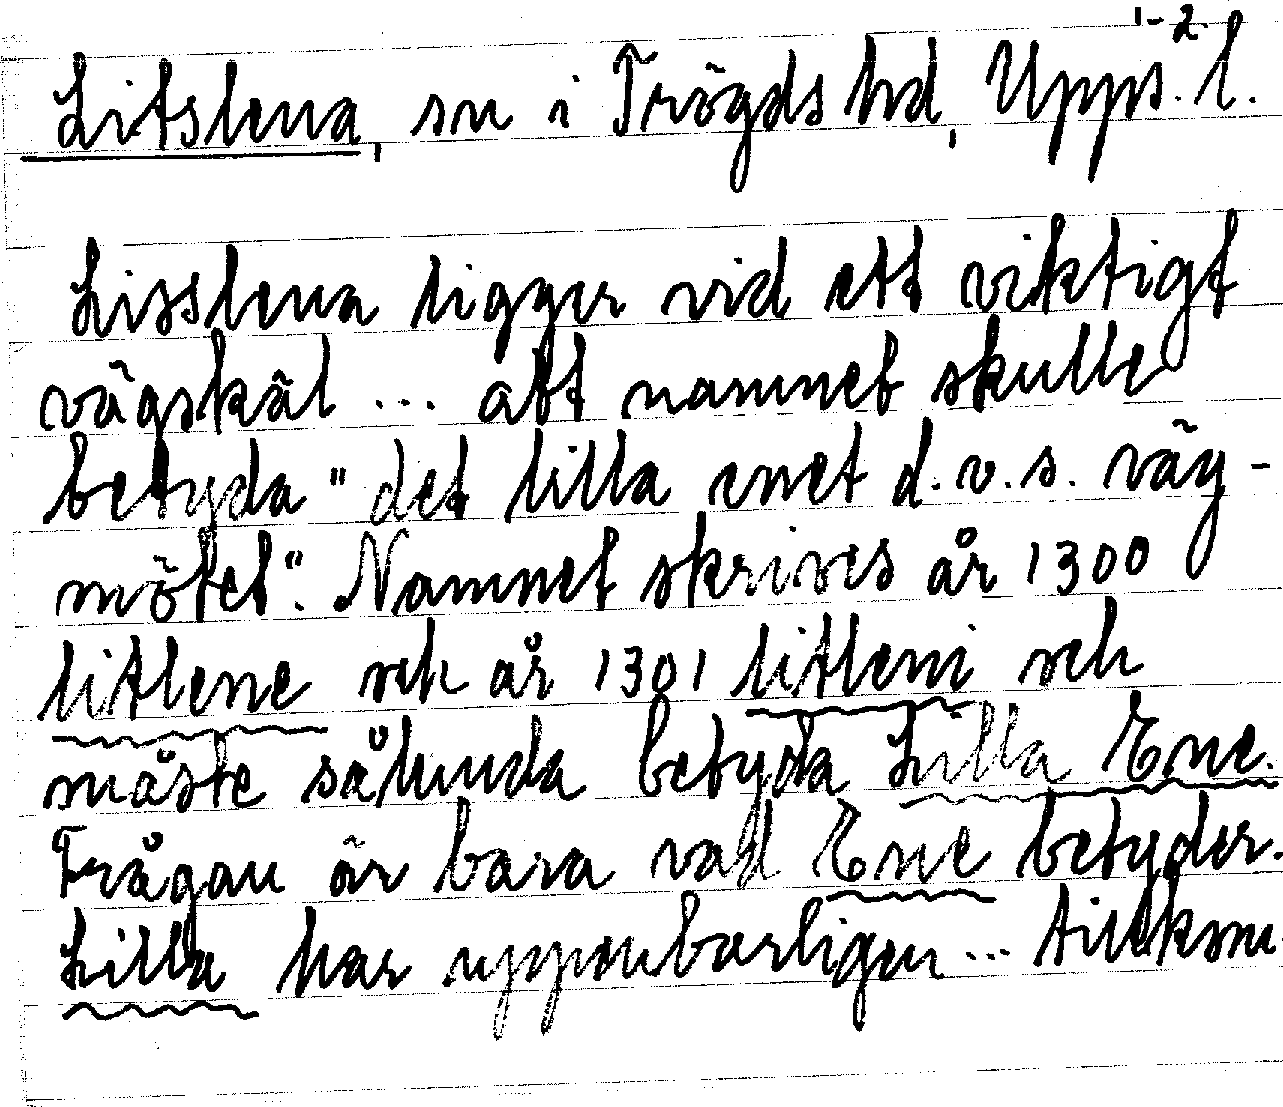 1-2.
Litslena, sn i Trögds hd, Upps. l.
Lisslena ligger vid ett viktigt
vägskäl ... att namnet skulle
betyda "det lilla enet d.v.s. väg-
mötet". Namnet skrives år 1300
litlene och år 1301 litleni och
måste sålunda betyda Lilla Ene.
Frågan är bara vad Ene betyder.
Lilla har uppenbarligen ... tillkom